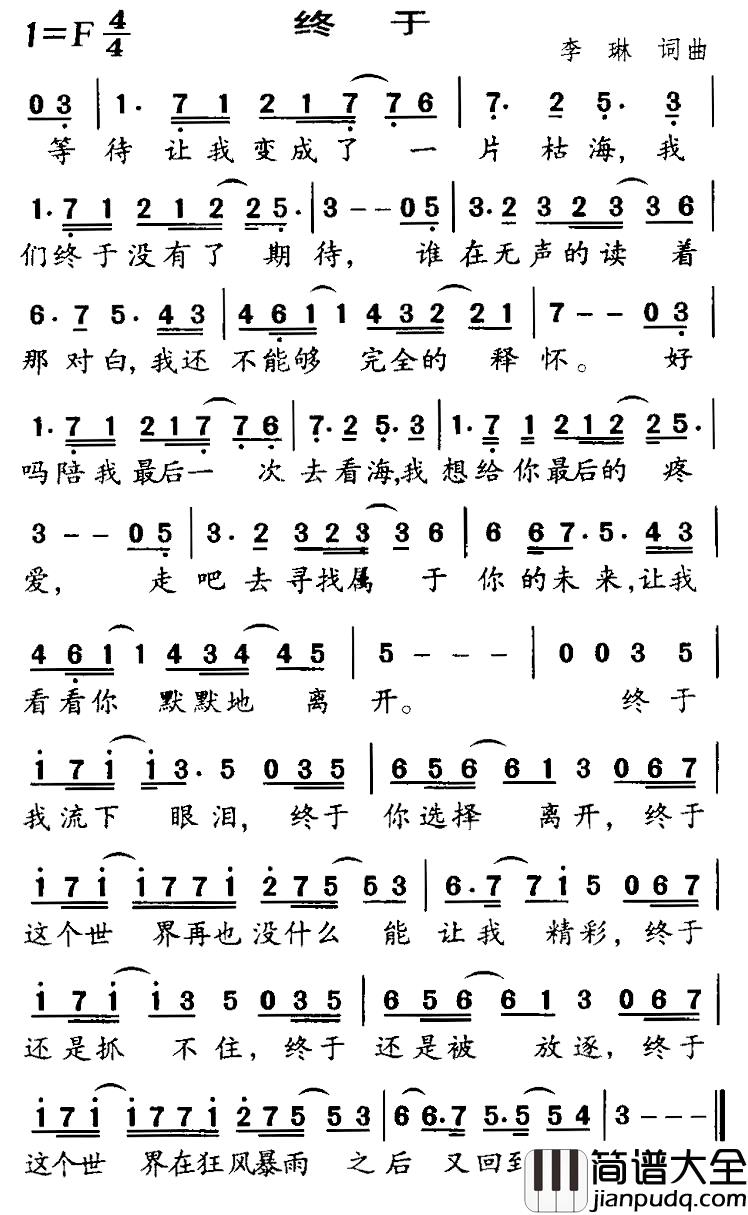 终 于
1=F 4/4
李 琳 词曲
0 3 | 1· 7 1 2 1 7 7 6 | 7· 2 5· 3 |
等 待 让 我 变 成 了 一 片 枯 海, 我
1· 7 1 2 1 2 2 5· | 3 - - 0 5 | 3· 2 3 2 3 3 6 |
们 终 于 没 有 了 期 待, 谁 在 无 声 的 读 着
6· 7 5· 4 3 | 4 6 1 1 4 3 2 2 1 | 7 - - 0 3 |
那 对 白, 我 还 不 能 够 完 全 的 释 怀。 好
1· 7 1 2 1 7 7 6 | 7· 2 5· 3 | 1· 7 1 2 1 2 2 5· |
吗 陪 我 最 后 一 次 去 看 海, 我 想 给 你 最 后 的 疼
3 - - 0 5 | 3· 2 3 2 3 3 6 | 6 6 7· 5· 4 3 |
爱, 走 吧 去 寻 找 属 于 你 的 未 来, 让 我
4 6 1 1 4 3 4 4 5 | 5 - - - | 0 0 3 5 |
看 看 你 默 默 地 离 开。 终 于
1 7 1 1 3· 5 0 3 5 | 6 5 6 6 1 3 0 6 7 |
我 流 下 眼 泪, 终 于 你 选 择 离 开, 终 于
1 7 1 1 7 7 1 2 7 5 5 3 | 6· 7 7 1 5 0 6 7 |
这 个 世 界 再 也 没 什 么 能 让 我 精 彩, 终 于
1 7 1 1 3 5 0 3 5 | 6 5 6 6 1 3 0 6 7 |
还 是 抓 不 住, 终 于 还 是 被 放 逐, 终 于
1 7 1 1 7 7 1 2 7 5 5 3 | 6 6· 7 5· 5 5 4 | 3 - - - ‖
这 个 世 界 在 狂 风 暴 雨 之 后 又 回 到
简谱大全
jianpudq.com